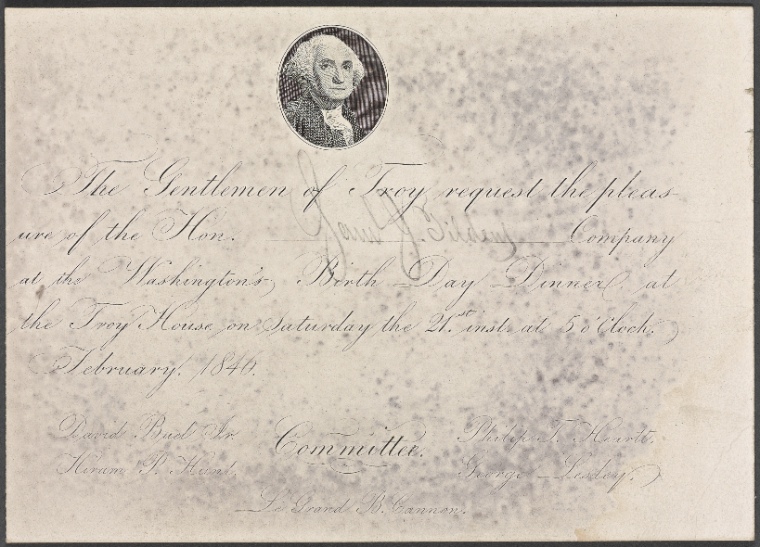 The Gentlemen of Troy request the pleas-
ure of the Hon. Saml J. Tilden's Company
at the Washington's Birth Day Dinner at
the Troy House on Saturday the 21st inst. at 5 o'Clock.
February. 1846.
David Buel Jr. Committee. Philip T. Heartt.
Hiram P. Hunt, George Lesley.
Le Grand B. Cannon.